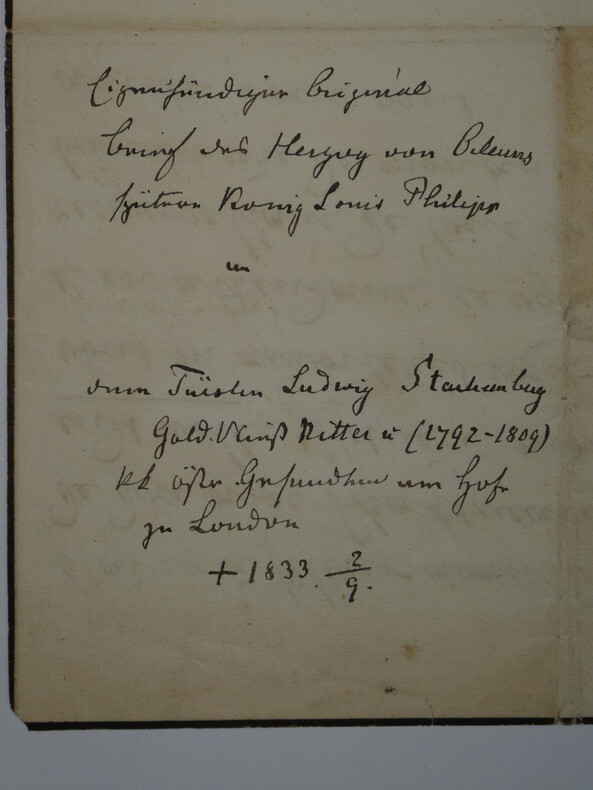 Eigenhändiger Original
brief des Herzog von Orleans
später König Louis Philipp
an
den Fürsten Ludwig Starhemberg
Gold. Vließ Ritter u (1792-1809)
kk östr. Gesandten am Hofe
zu London
+ 1833. 2/9.